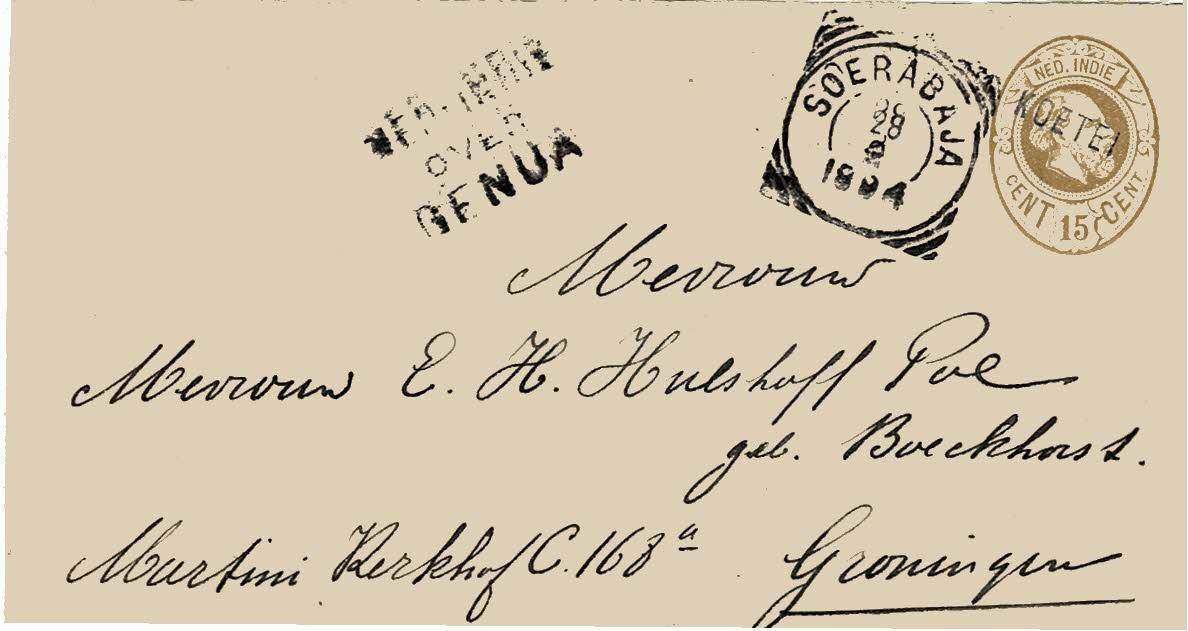 NED. INDIE
OVER
GENUA
SOERABAJA
28
1894
NED. INDIE
KOETEI
CENT 15 CENT
Mevrouw
Mevrouw E. H. Hulshoff Pol
geb. Boeckhorst.
Martini Kerkhof C. 168 a
Groningen